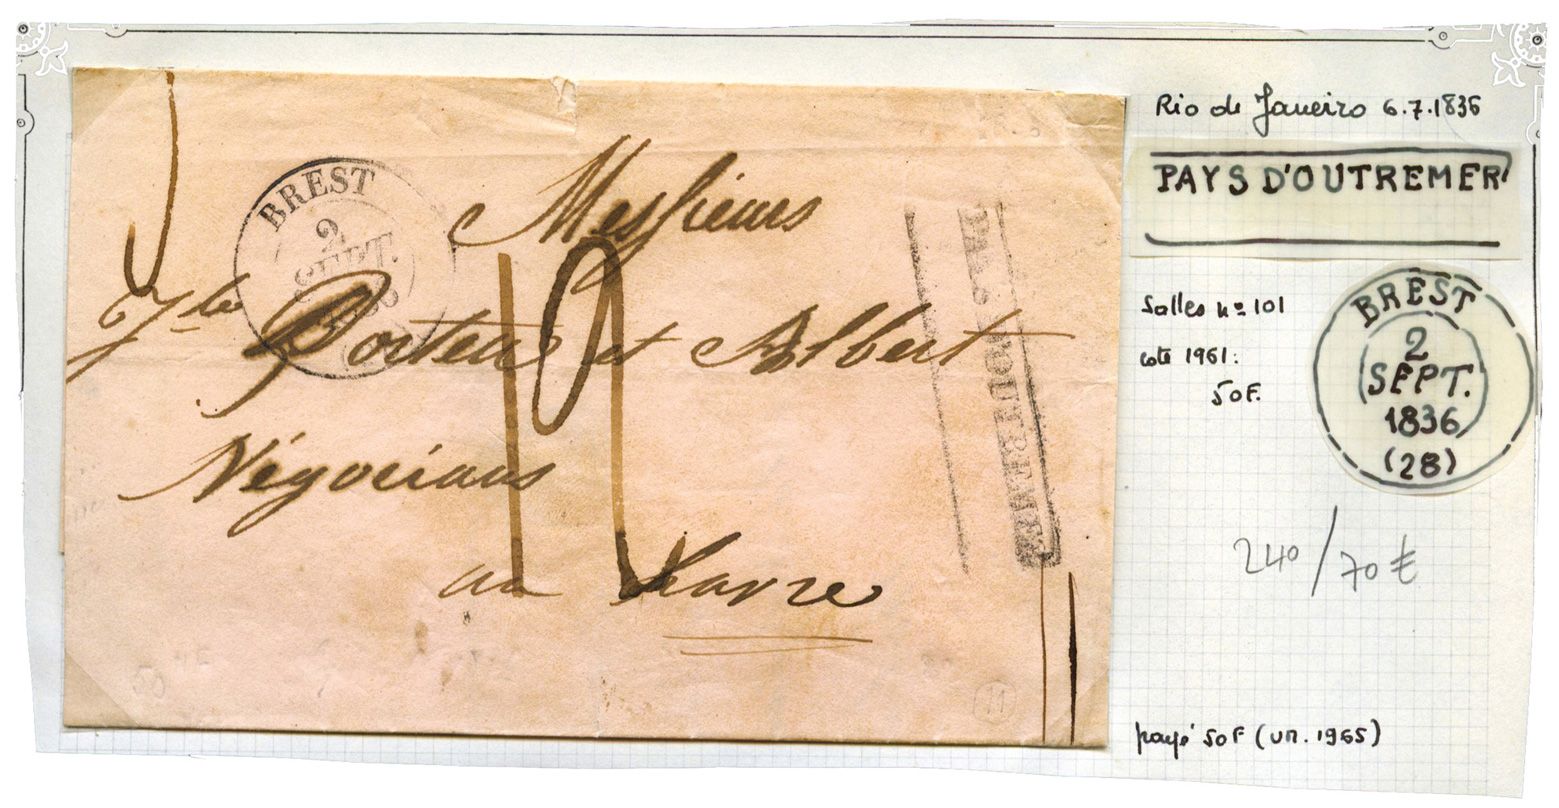 BREST
2
SEPT.
Messieurs
Vve Porteu et Albert
Négocians
au havre
PAYS D'OUTREMER
11
Rio de Janeiro 6.7.1836
PAYS D'OUTREMER
Salles no 101
cote 1961:
50F.
BREST
2
SEPT.
1836
(28)
240/70 €
payé 50F (VII.1965)